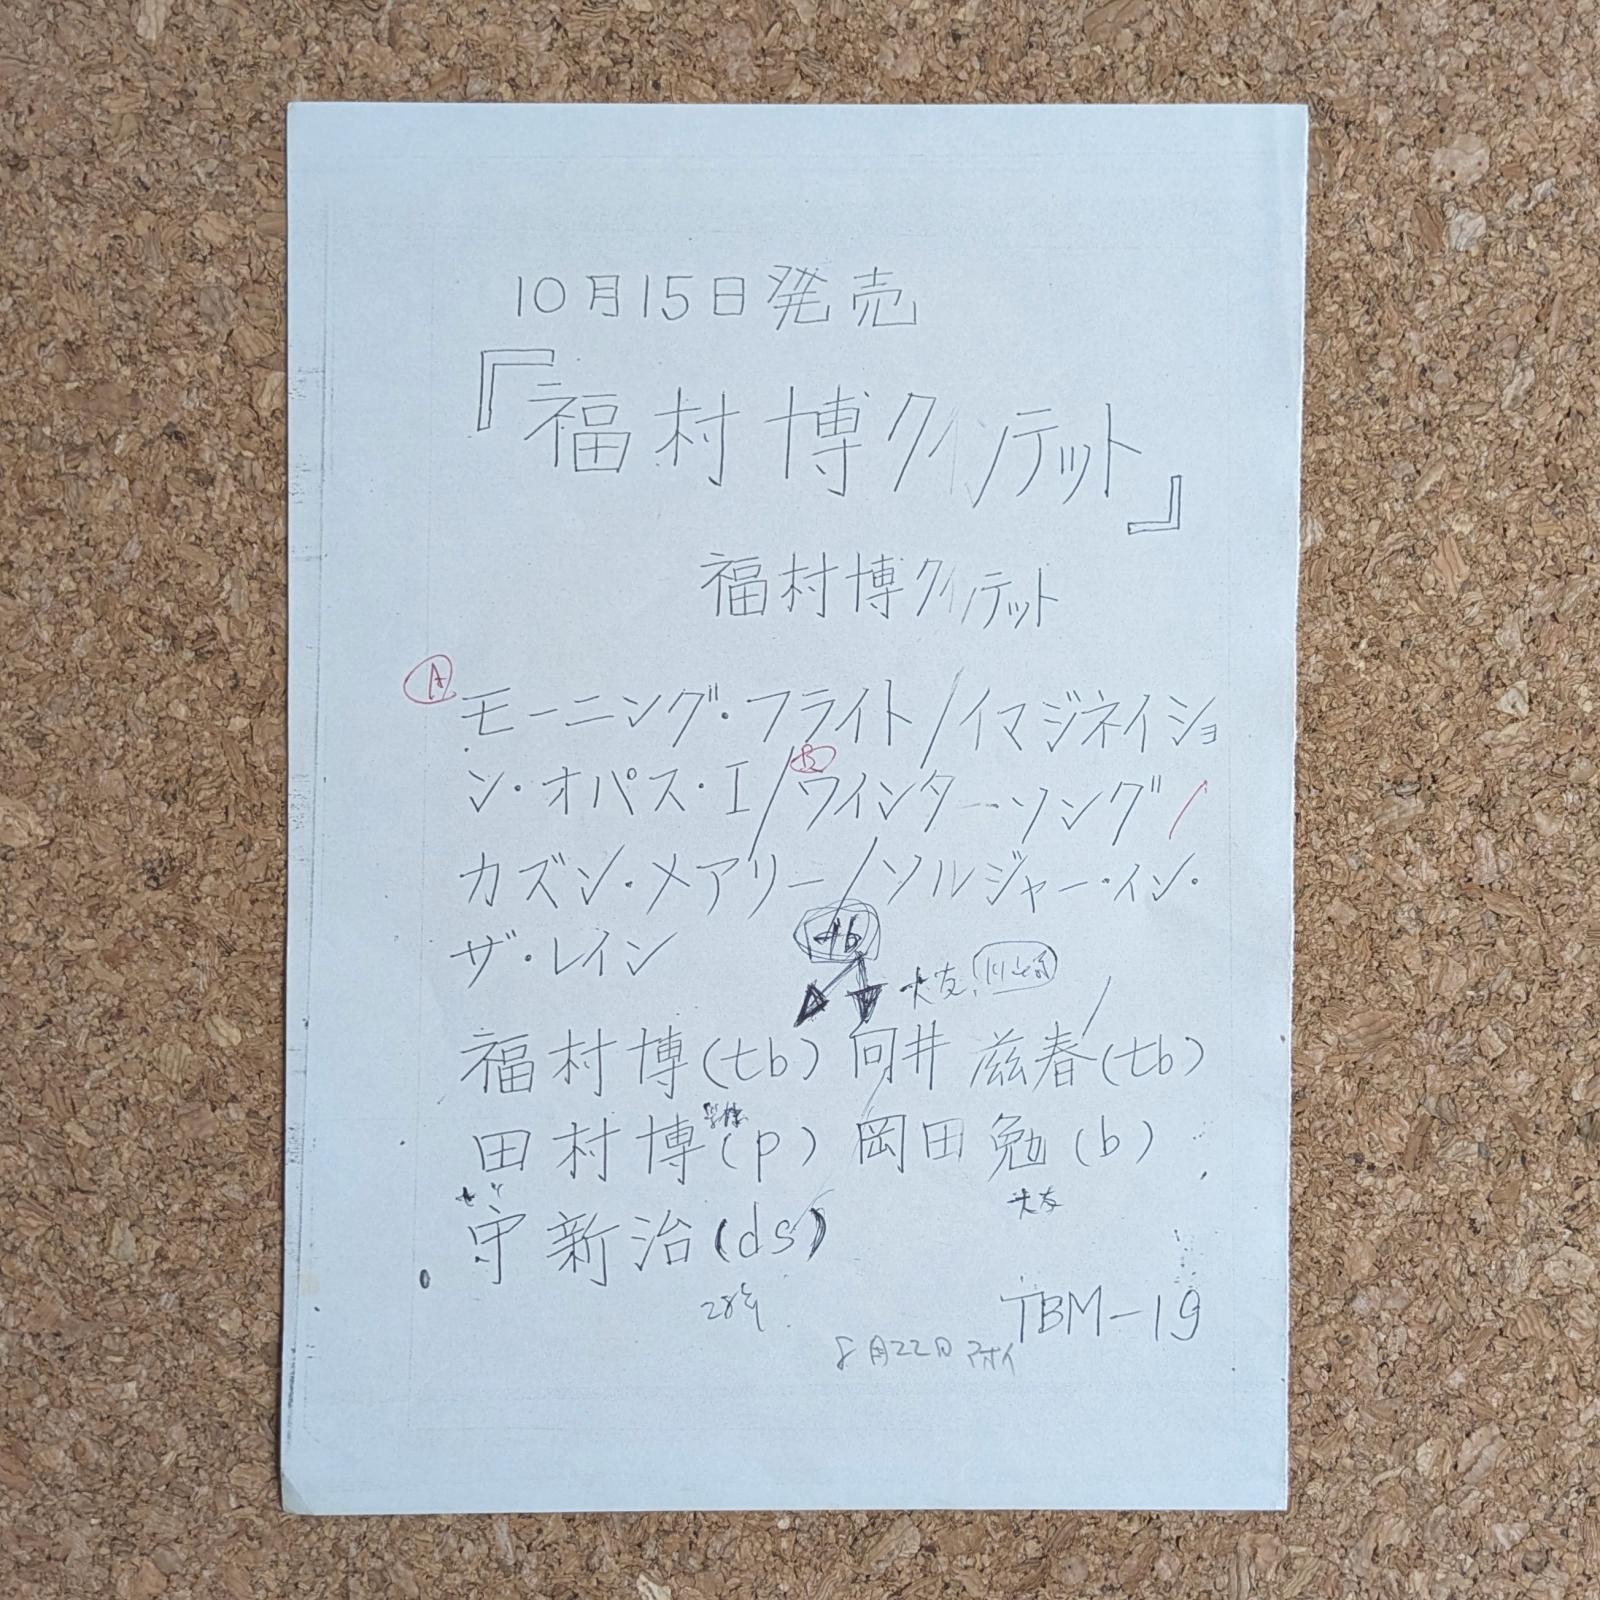 10月15日発売
『福村博クインテット』
福村博クインテット
Ⓐ モーニング・フライト/イマジネイショ
ン・オパス・I/Ⓑウインターソング/
カズン・メアリー/ソルジャー・イン・
ザ・レイン
大友
福村博(tb) 向井滋春(tb)
田村博(p) 岡田勉(b)
大友
守新治(ds)
TBM-19
8月22日 アオイ